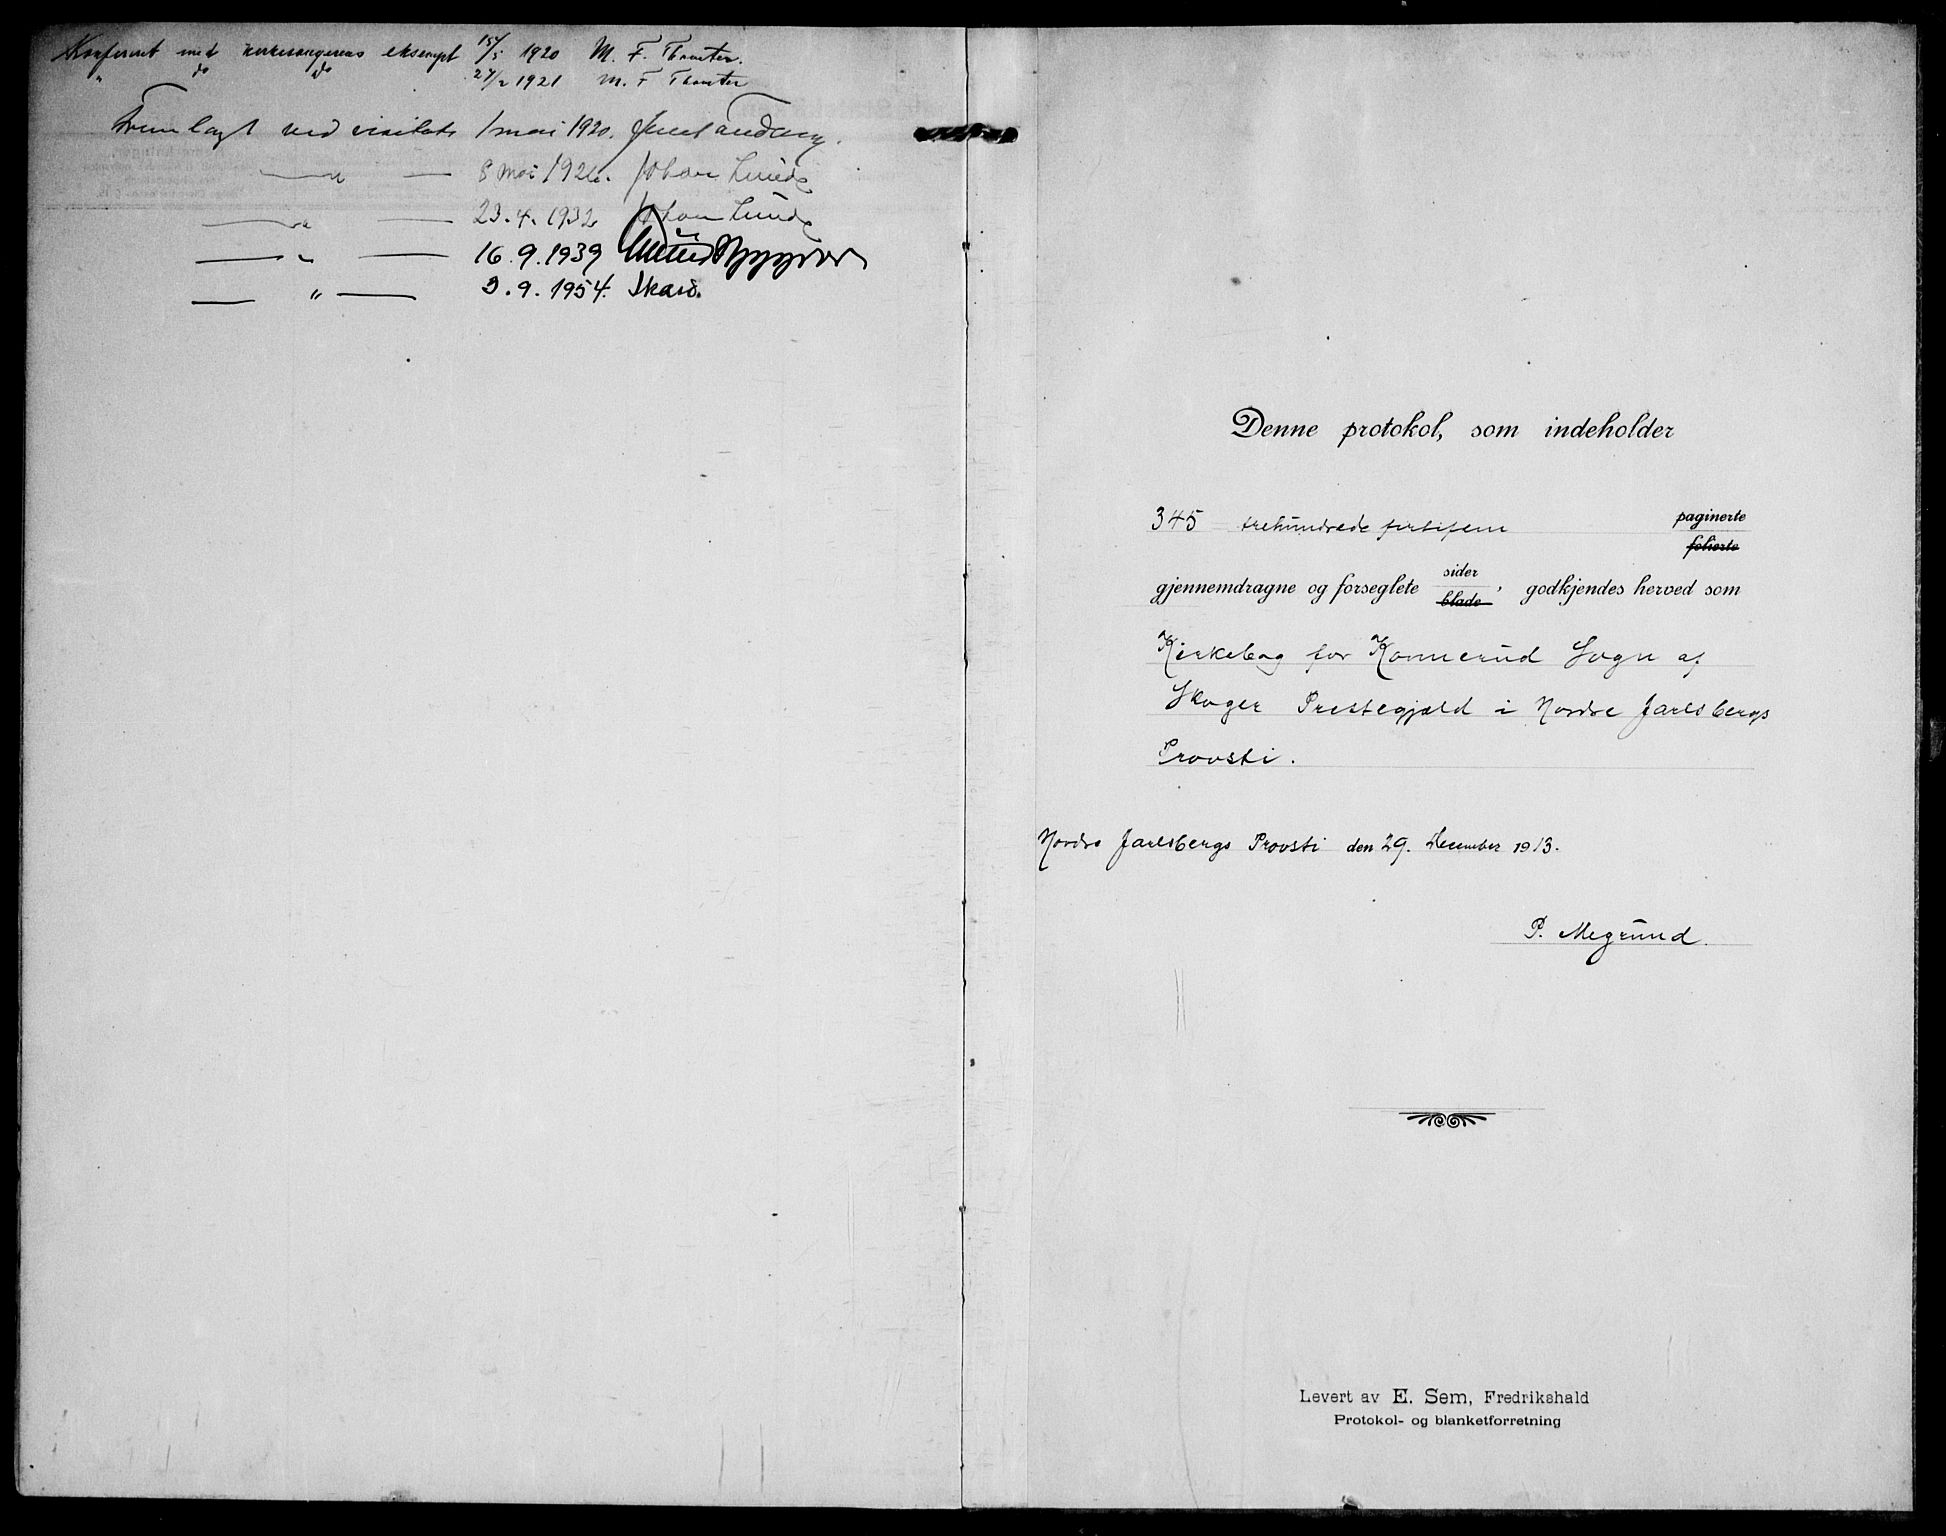 Konferert med kirkesangerens eksempl 15/5 1920 M. F. Thronter.
" do do 27/2 1921 M. F Thronter
Fremlagt ved visitats 1 mai 1920. Jens Tandberg.
— " — 8 mai 1926. Johan Lunde
— " — 23.4.1932 Johan Lunde
— " — 16.9.1939
— " — 3.9.1954. Skard.
Denne protokol, som indeholder
345 trehundrede førtifem paginerte
folierte
gjennemdragne og forseglete sider
blade, godkjendes herved som
Kirkebog for Konnerud Sogn af
Skoger Prestegjæld i Nordre Jarlsbergs
Provsti.
Nordre Jarlsbergs Provsti den 29. December 1913.
P. Megrund.
Levert av E. Sem, Fredrikshald
Protokol- og blanketforretning